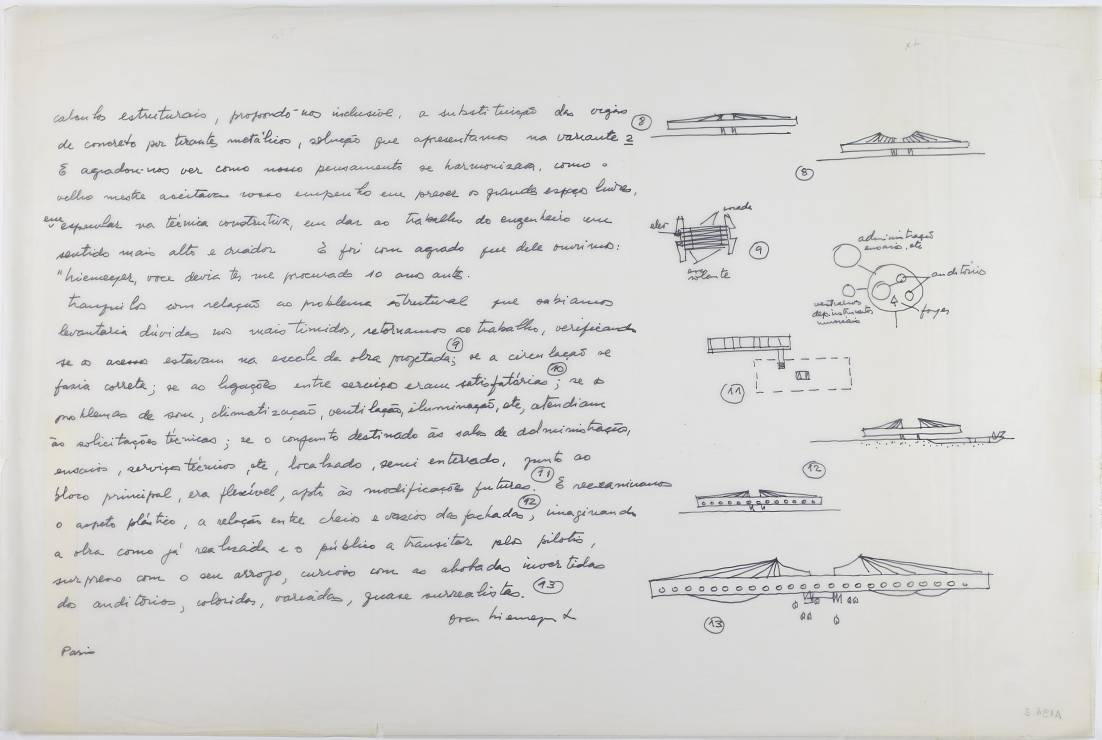 calculos estruturais, propondo-nos inclusive, a substituição das vigas
de concreto por tirantes metálicos, solução que apresentamos na variante 2
E agradou-nos ver como nosso pensamento se harmonizava, como o
velho mestre aceitava nosso empenho em prever os grandes espaços livres,
em especular na técnica construtiva, em dar ao trabalho do engenheiro um
sentido mais alto e criador E foi com agrado que dele ouvimos:
"Niemeyer, voce devia ter me procurado 10 anos antes.
Tranquilos com relação ao problema estrutural que sabiamos
levantaria dúvidas nos mais timidos, retornamos ao trabalho, verificando
se os acessos estavam na escala da obra projetada; se a circulação se
9
fazia correta; se as ligações entre serviços eram satisfatórias; se os
10
problemas de som, climatização, ventilação, iluminação, etc, atendiam
às solicitações técnicas; se o conjunto destinado às salas de administração,
ensaios, serviços técnicos, etc, localizado, semi enterrado, junto ao
bloco principal, era flexivel, apto às modificações futuras. E reexaminamos
11
o aspeto plástico, a relação entre cheios e vasios das fachadas, imaginando
12
a obra como já realizada e o público a transitar pelos pilotis,
surpreso com o seu arrojo, curioso com as abobadas invertidas
dos auditórios, coloridas, variadas, quase surrealistas. 13
Oscar Niemeyer
Paris
8
8
elev
escada
9
esc
rolante
administração
ensaio, etc
auditório
foyer
vestiarios
dep. instrumentos
musicais
11
12
13